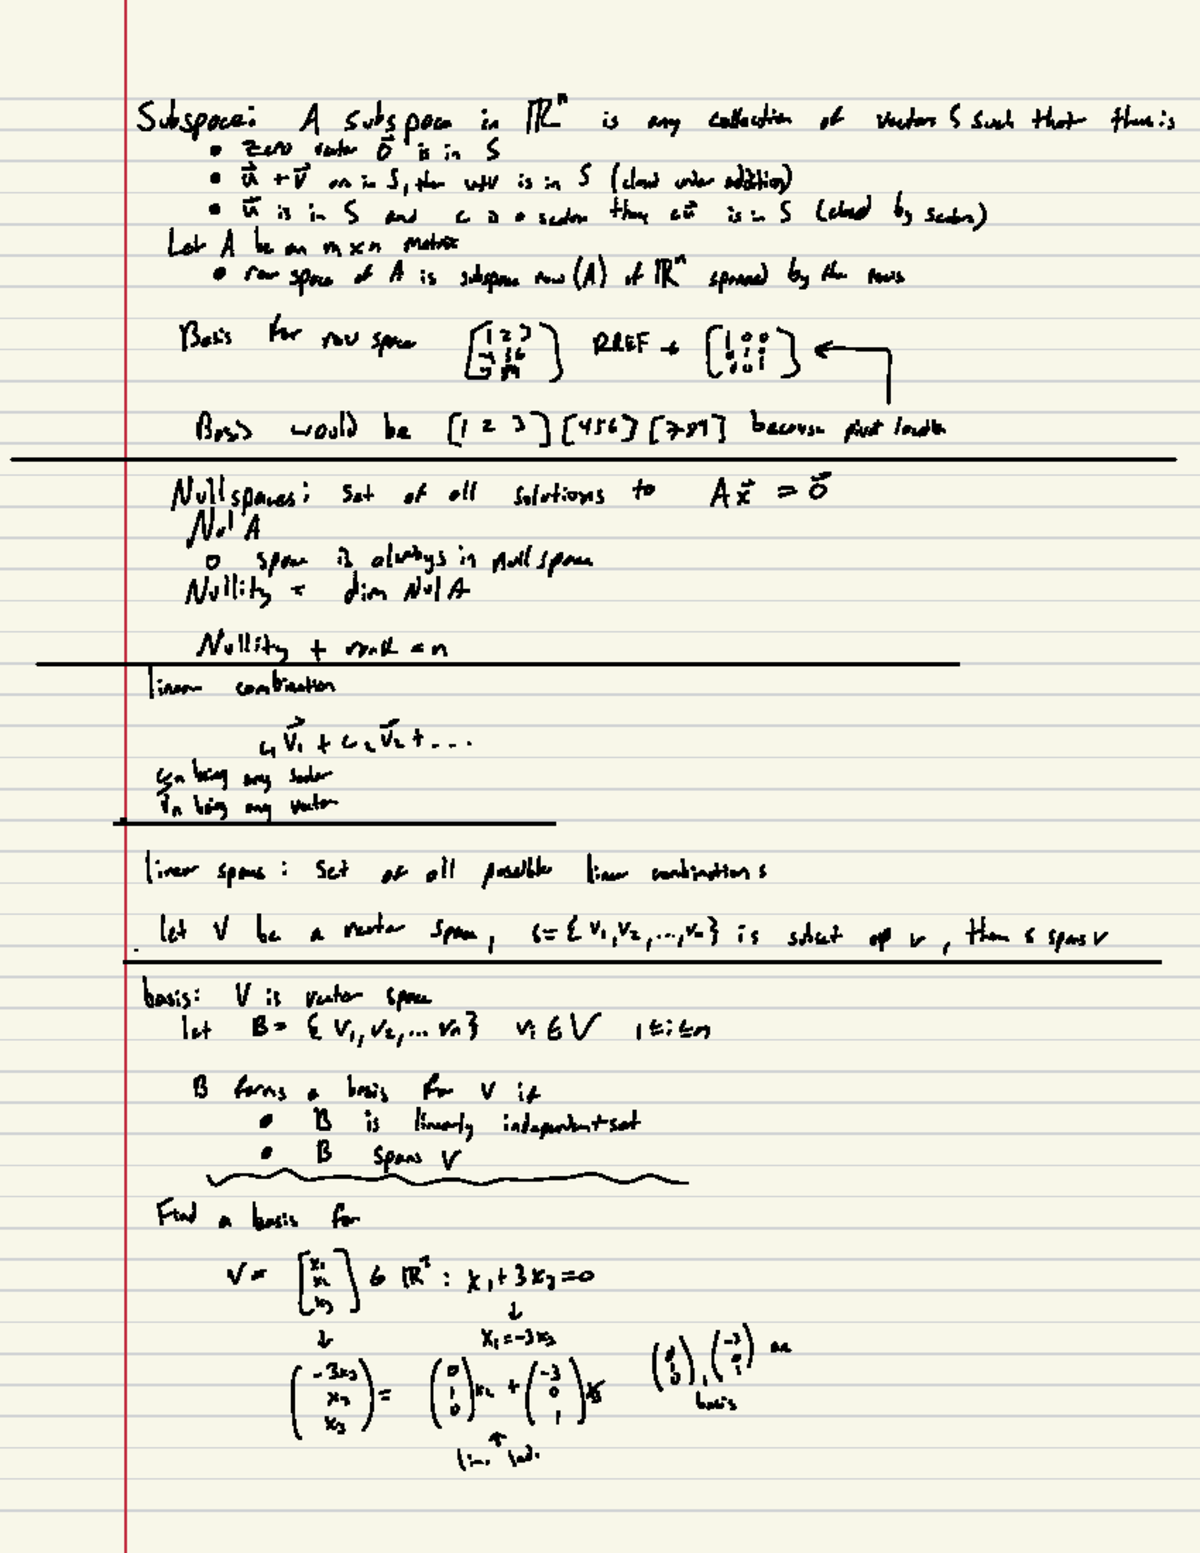 Subspace: A subspace in ℝⁿ is any collection of vectors S such that there is
• zero vector 0⃗ is in S
• u⃗ + v⃗ are in S, then u+v is in S (closed under addition)
• u⃗ is in S and c is a scalar then cu⃗ is in S (closed by scalars)
Let A be an m x n matrix
• row space of A is subspace row(A) of ℝⁿ spanned by the rows
Basis for row space [1 2 3 4 5 6 7 8 9] RREF → [1 0 0 0 1 0 0 0 1]
Basis would be [1 2 3] [4 5 6] [7 8 9] because pivot
Nullspaces: set of all solutions to Ax⃗ = 0⃗
Nul A
0 space is always in null space
Nullity = dim Nul A
Nullity + rank = n
linear combination
c₁v⃗₁ + c₂v⃗₂ + ...
cₙ being any scalar
v⃗ₙ being any vector
linear spans: set of all possible linear combinations
let V be a vector space, s = {v₁, v₂, ..., vₙ} is subset of v, then s spans v
basis: V is vector space
let B = {v₁, v₂, ... vₙ} vᵢ ∈ V 1≤i≤n
B forms a basis for V if
• B is linearly independent set
• B spans V
Find a basis for
V = [x₁ x₂ x₃] ∈ ℝ³ : x₁ + 3x₃ = 0
↓ ↓
x₁ = -3x₃
(-3x₃ x₂ x₃) = (0 1 0)x₂ + (-3 0 1)x₃ (0 1 0), (-3 0 1) are
basis
↑
lin. ind.